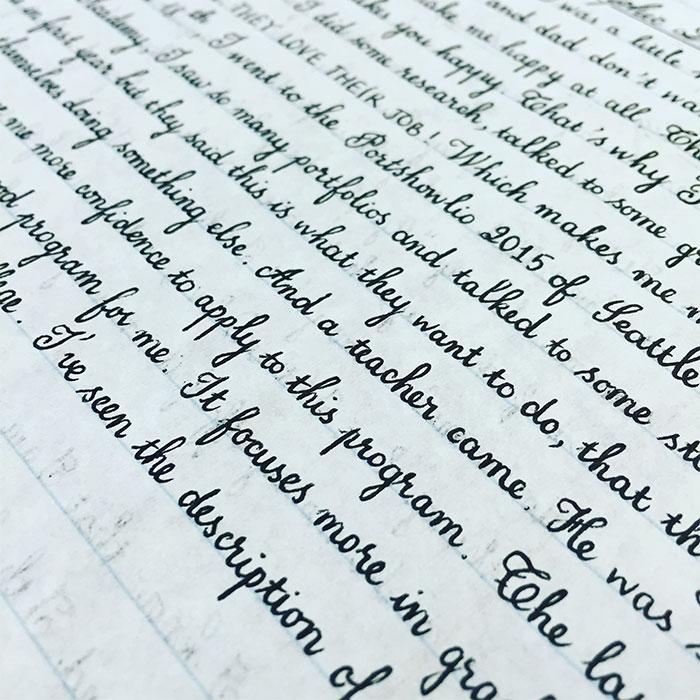 was a little
and dad don't wa
make me happy at all. Th
you happy. That's why I
I did some research, talked to some gr
THEY LOVE THEIR JOB! Which makes me
th I went to the Portshowlio 2015 of Seattle
I saw so many portfolios and talked to some st
in first year but they said this is what they want to do, that th
themselves doing something else. And a teacher came. He was s
me more confidence to apply to this program. The la
program for me. It focuses more in gra
I've seen the description of